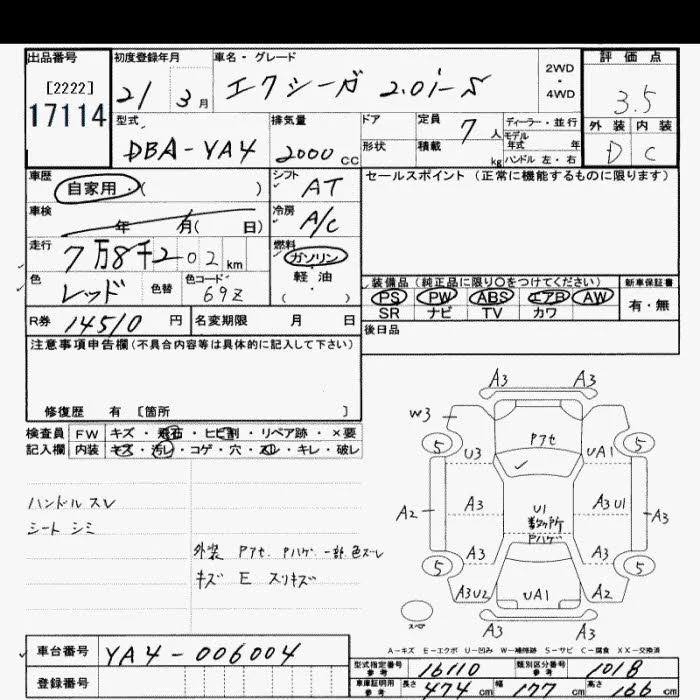 出品番号 初度登録年月 車名・グレード 2WD・4WD 評価点
[2222]
17114
21 3月 エクシーガ 2.0i-S 3.5
型式 排気量 ドア 定員 7人 ディーラー・並行 外装 内装
モデル年式 年
DBA-YA4 2000cc 形状 積載 kg ハンドル 左・右 D C
車歴 自家用・( ) シフト AT セールスポイント (正常に機能するものに限ります)
車検 年 月( 日) 冷房 A/C
走行 7万8千202km 燃料 ガソリン
軽油
( )
色 レッド 色替 色コード 69Z
装備品 (純正品に限り○をつけてください) 新車保証書
PS PW ABS エアB AW 有・無
SR ナビ TV カワ
R券 14510円 名変期限 月 日 後日品
注意事項申告欄(不具合内容等は具体的に記入して下さい)
修復歴 有 [箇所 ]
検査員 FW キズ・飛石・ヒビ割・リペア跡・×要
記入欄 内装 キズ・汚レ・コゲ・穴・スレ・キレ・破レ
ハンドル スレ
シート シミ
外装 Pアセ Pハゲ 一部色ズレ
キズ E スリキズ
A3 A3
W3 Pアセ
5 U3 UA1 5
A2 A3 U1 A3 U1 A3
数ヶ所
Pハゲ
A3 A3
5 5
A3U2 UA1 A2
A3 A3
スペア
A-キズ E-エクボ U-凹み W-補修跡 S-サビ C-腐食 XX-交換済
車台番号 YA4-006004
登録番号
型式指定番号 参考 16110 類別区分番号 参考 1018
車庫証明用 参考 長さ 474cm 幅 177cm 高さ 166cm